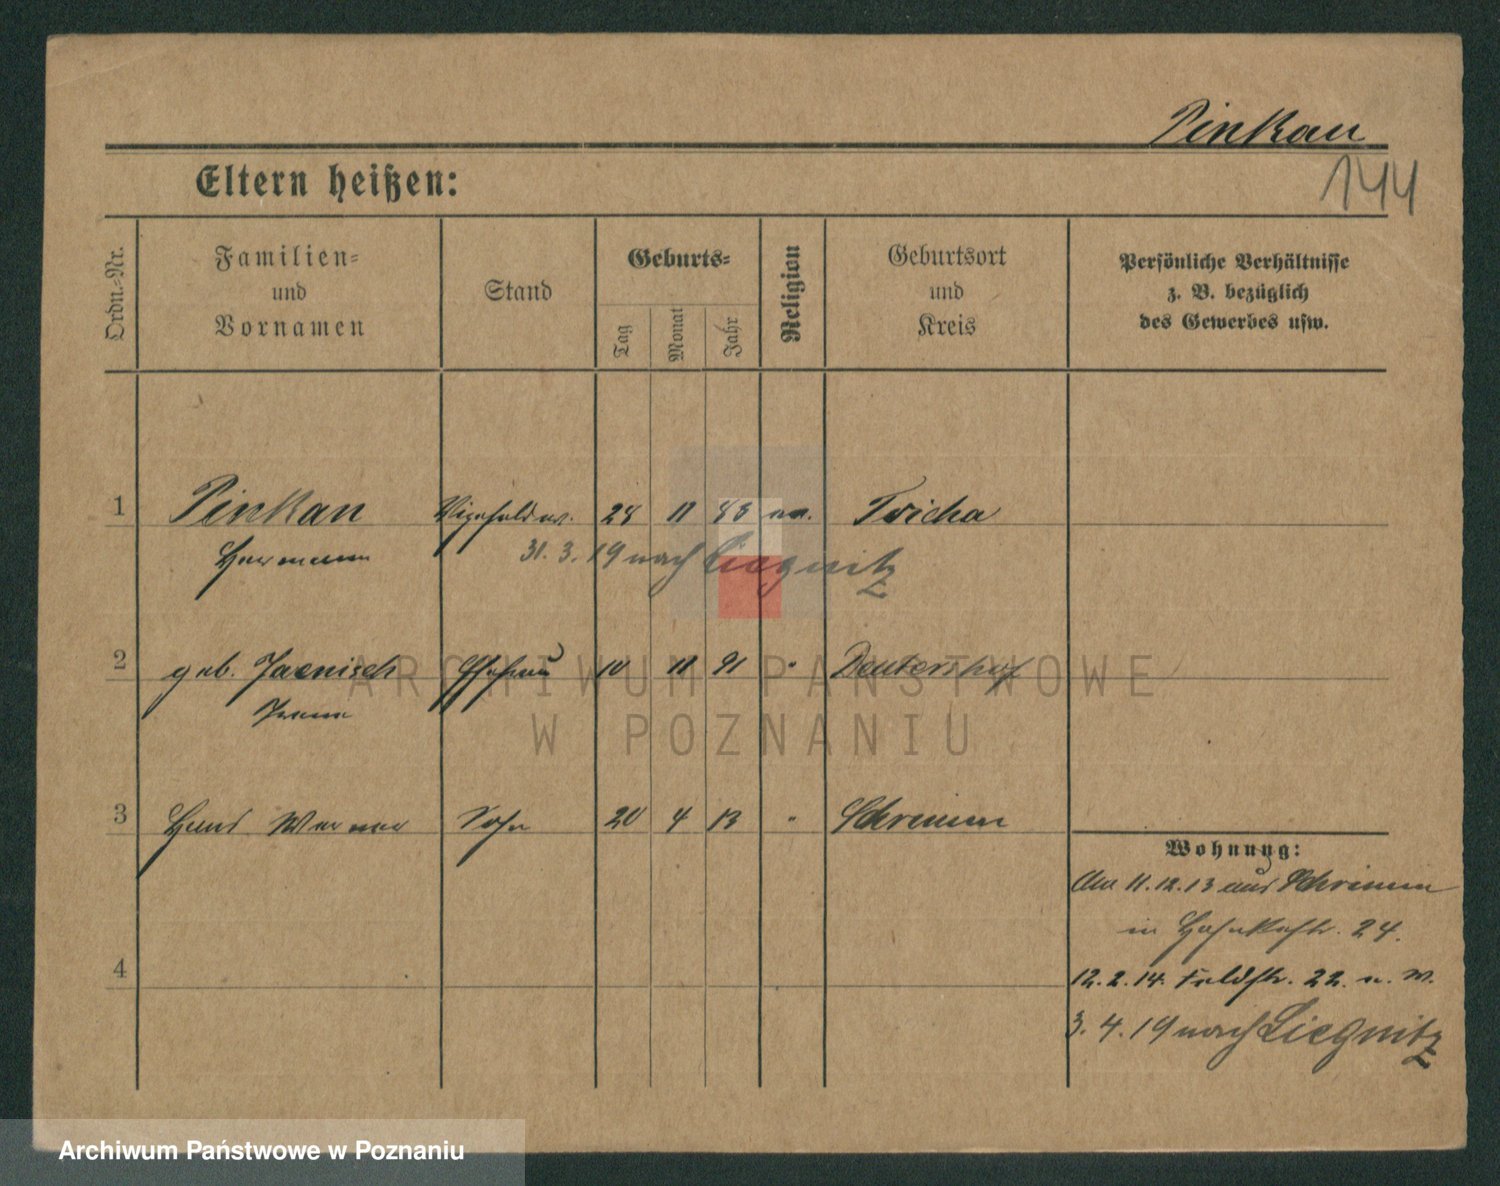 Pinkau
144
Eltern heißen:
Ordn.-Nr.
Familien-
und
Vornamen
Stand
Geburts-
Tag
Monat
Jahr
Religion
Geburtsort
und
Kreis
Persönliche Verhältnisse
z. B. bezüglich
des Gewerbes usw.
1 Pinkau Vizefeldw. 28 11 83 ev. Tricha
Hermann 31. 3. 19 nach Liegnitz
2 geb. Jaenisch Ehefrau 10 11 91 " Deutershof
3 Hans Werner Sohn 20 4 13 " Schrimm
Wohnung:
11.12.13 aus Schrimm
in 24.
4
12.2.14. Feldstr. 22. u. W.
3. 4. 19 nach Liegnitz
ARCHIWUM PAŃSTWOWE
W POZNANIU
Archiwum Państwowe w Poznaniu